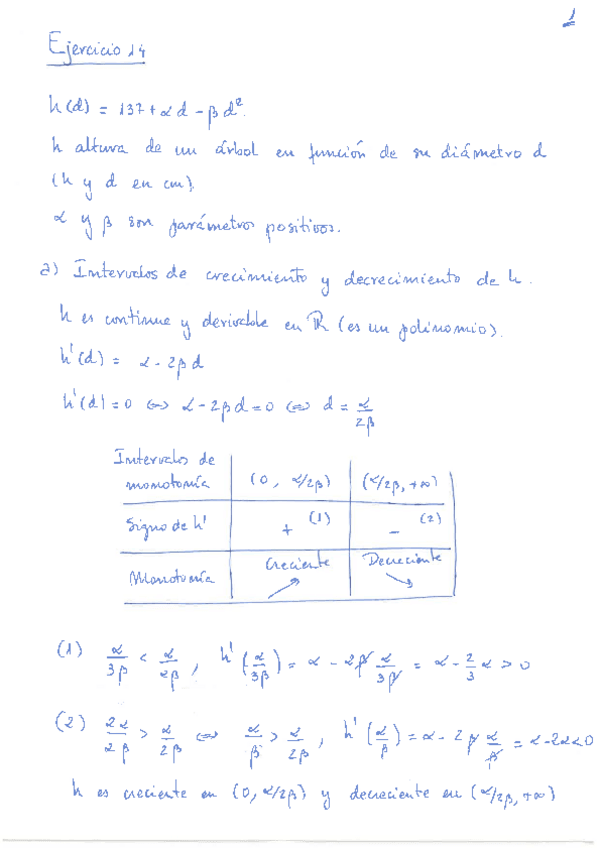 1
Ejercicio 14
h(d) = 137 + α d - β d².
h altura de un árbol en función de su diámetro d
(h y d en cm).
α y β son parámetros positivos.
a) Intervalos de crecimiento y decrecimiento de h.
h es continua y derivable en ℝ (es un polinomio).
h'(d) = α - 2β d
h'(d) = 0 ⇔ α - 2β d = 0 ⇔ d = α/2β
Intervalos de
monotonía (0, α/2β) (α/2β, +∞)
Signo de h' + (1) - (2)
Monotonía Creciente ↗ Decreciente ↘
(1) α/3β < α/2β, h'(α/3β) = α - 2β α/3β = α - 2/3 α > 0
(2) 2α/2β > α/2β ⇔ α/β > α/2β, h'(α/β) = α - 2β α/β = α - 2α < 0
h es creciente en (0, α/2β) y decreciente en (α/2β, +∞)